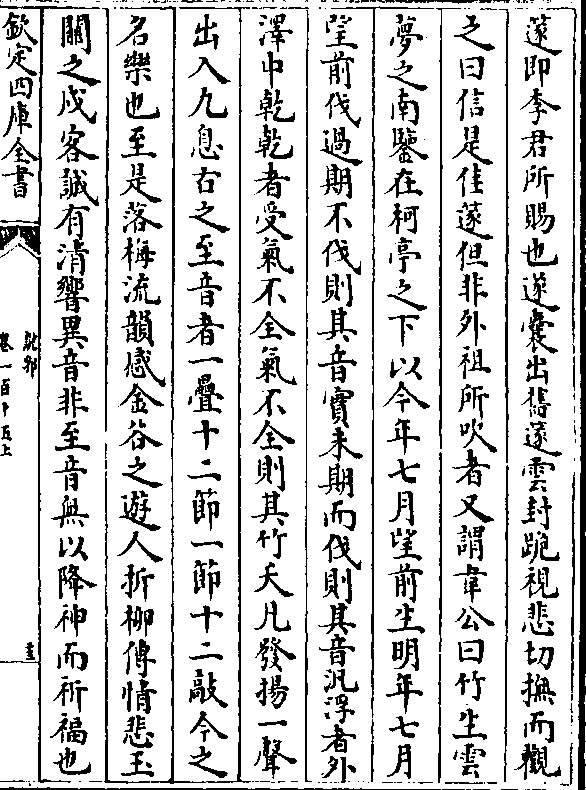 篴即李君所賜也遂囊出舊篴雲封跪視悲切撫而觀
之曰信是佳篴但非外祖所吹者又謂韋公曰竹生雲
夢之南鑒在柯亭之下以今年七月望前生明年七月
望前伐過期不伐則其音實未期而伐則其音汎浮者外
澤中乾乾者受氣不全氣不全則其竹夭凡發揚一聲
出入九息古之至音者一疊十二節一節十二敲今之
名樂也至是落梅流韻感金谷之遊人折柳傳情悲玉
關之戍客誠有清響異音非至音無以降神而祈福也
欽定四庫全書
說郛
卷一百十五上